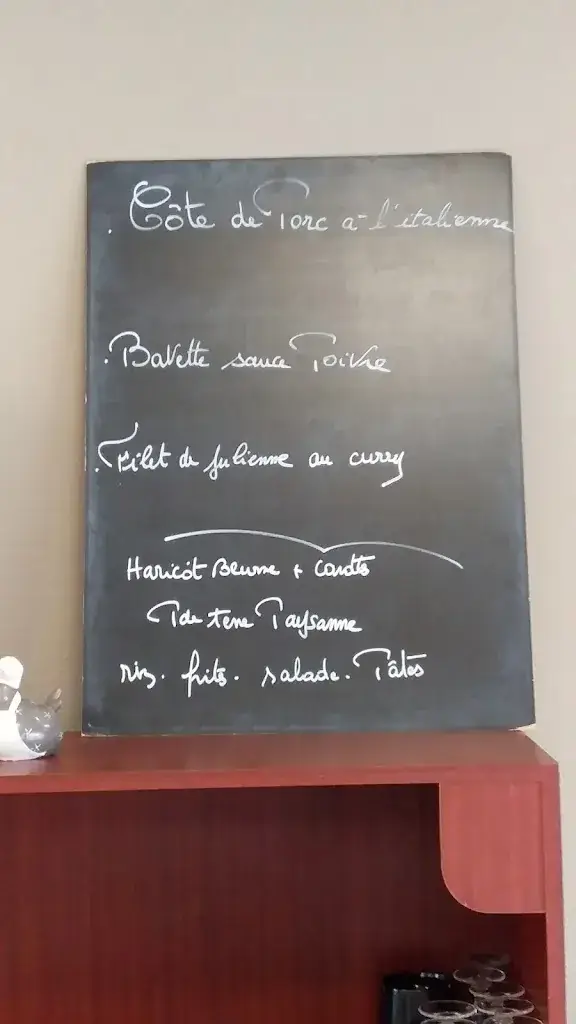 . Côte de Porc a l'italienne
. Bavette sauce Poivre
. Filet de Julienne au curry
Haricot Beurre + Carottes
P de terre Paysanne
riz. frites. salade. Pâtes